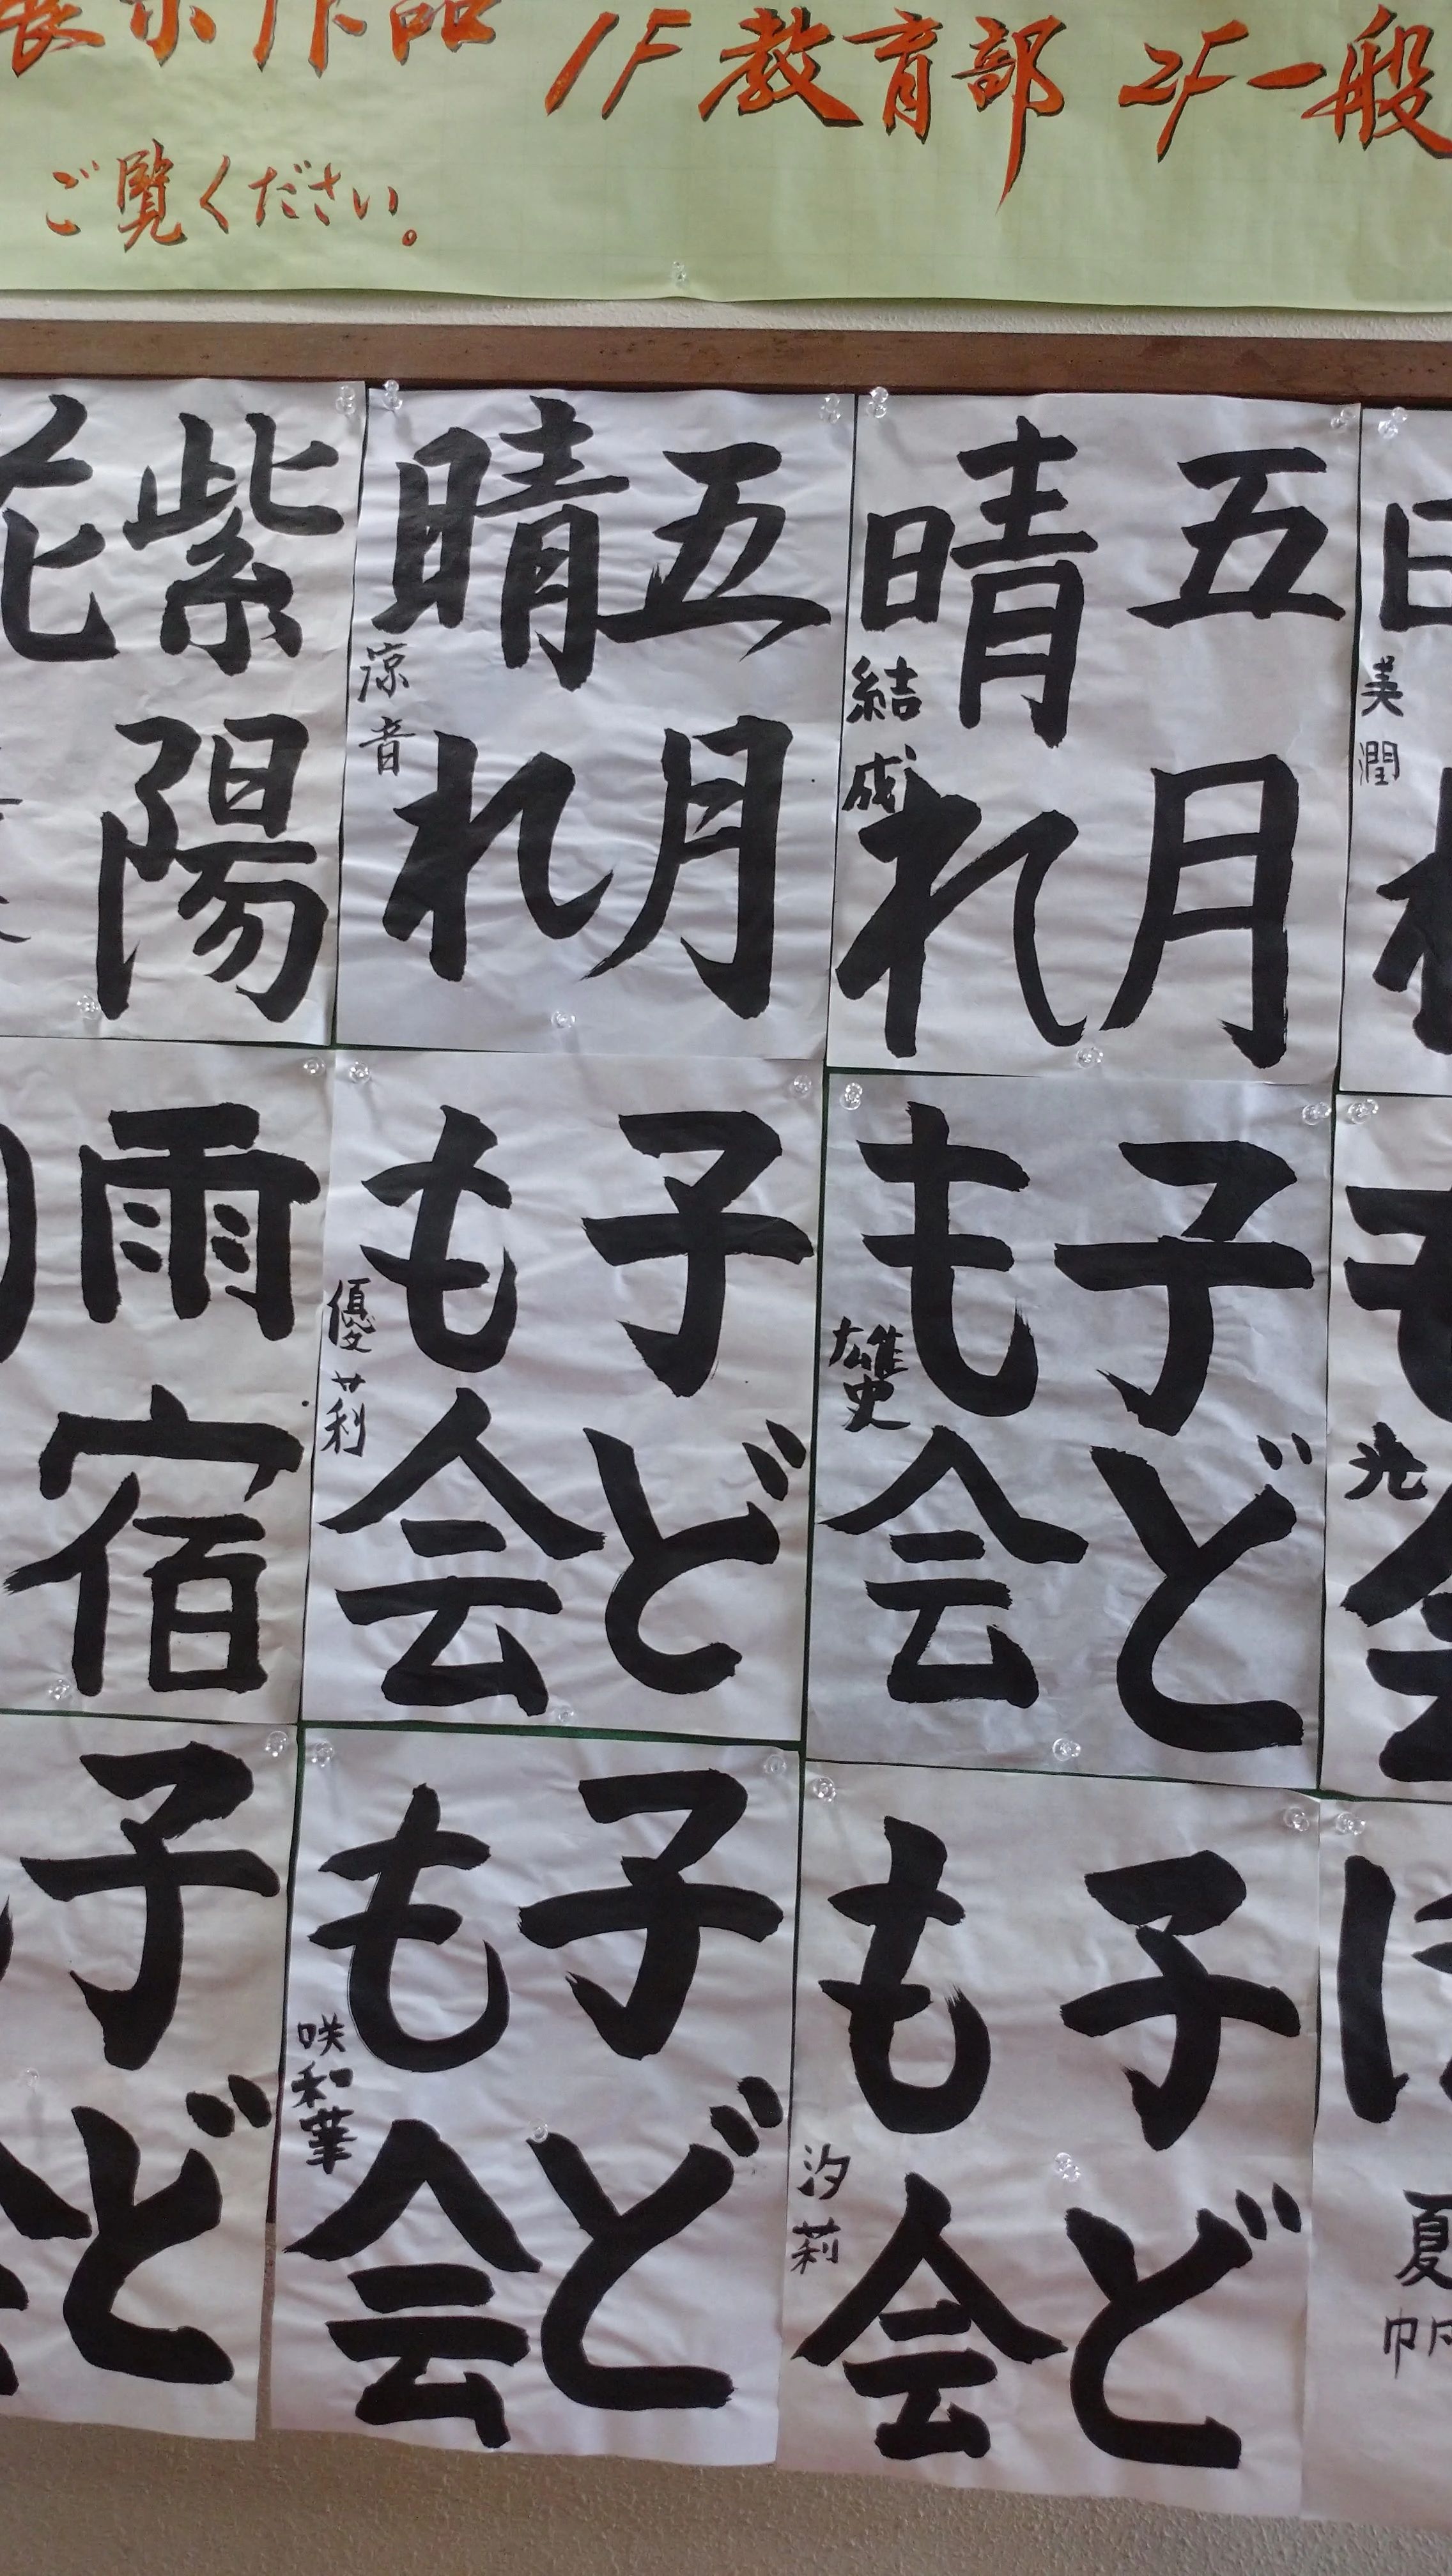 展示作品 1F教育部 2F一般
ご覧ください。
五月
晴れ
結成
五月
晴れ
涼音
紫陽
花
美潤
子ど
も会
雄史
子ど
も会
優莉
雨宿
り
も会
光
子ど
も会
汐莉
子ど
も会
咲和華
子ど
も会
は
夏帆